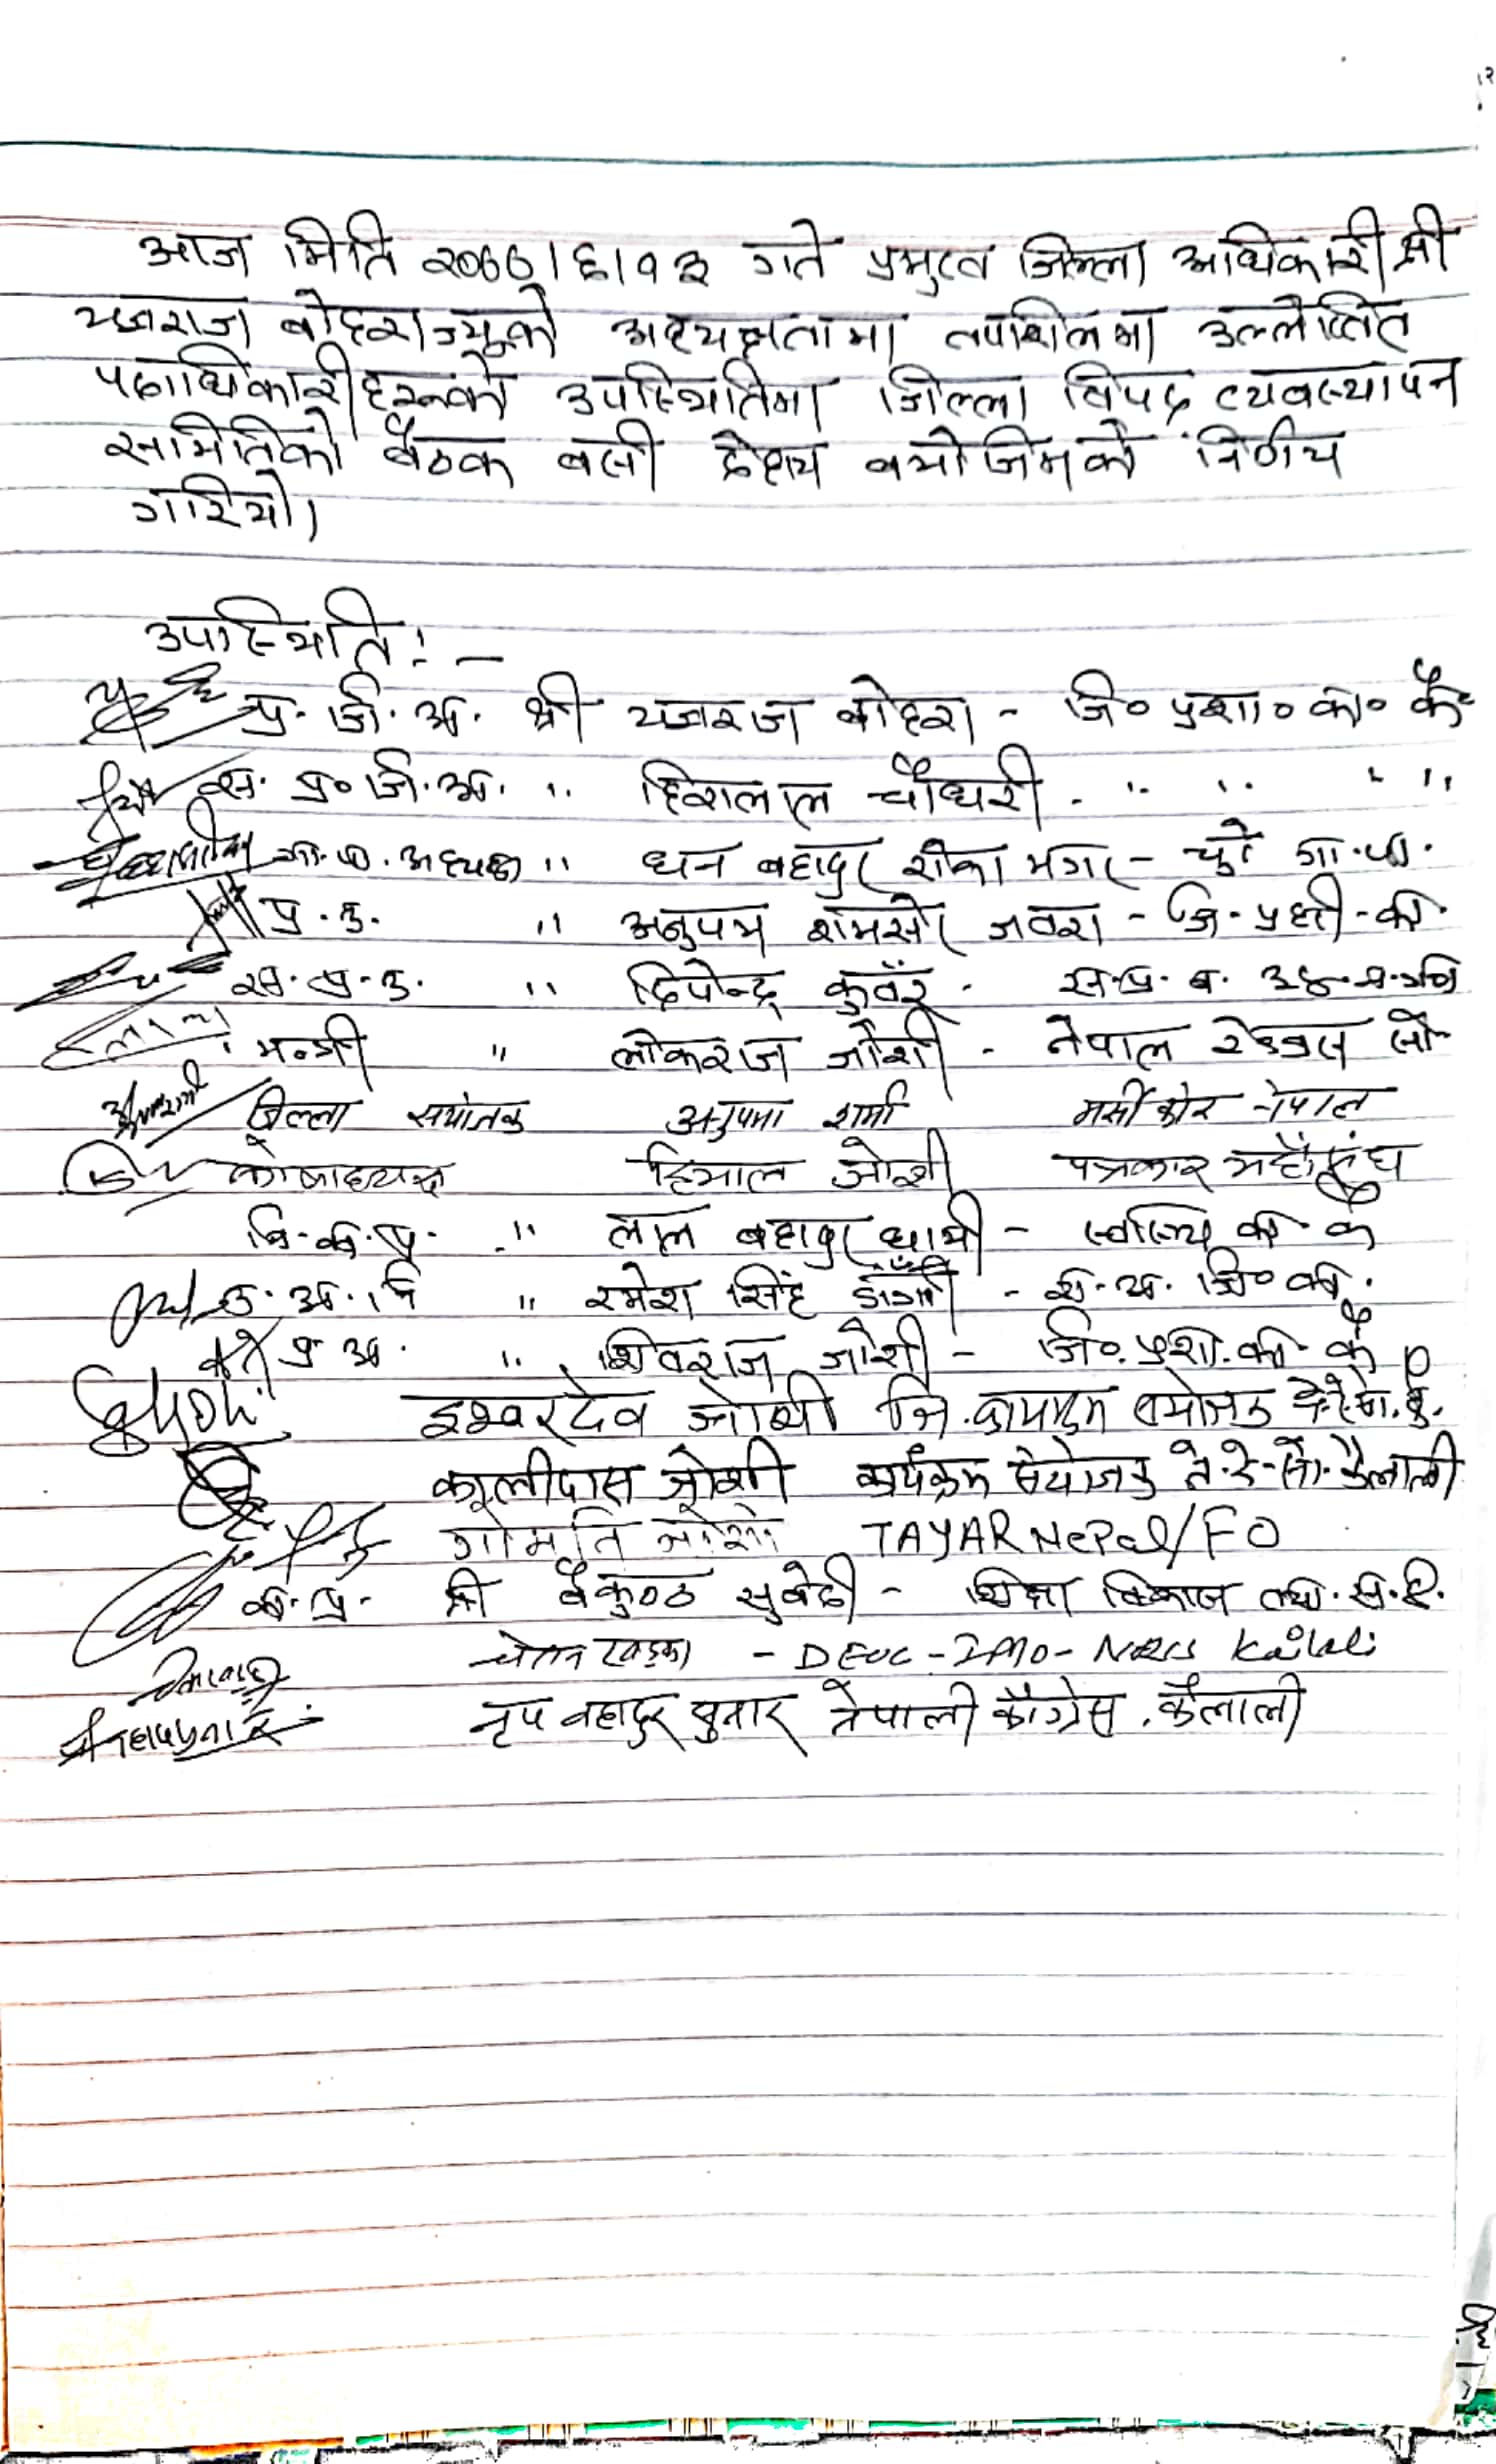 आज मिति २०७७।६।१३ गते प्रमुख जिल्ला अधिकारी श्री
यज्ञराज बोहराज्यूको अध्यक्षतामा तपशिलमा उल्लेखित
पदाधिकारीहरूको उपस्थितिमा जिल्ला विपद् व्यवस्थापन
समितिको बैठक बसी देहाय बमोजिमको निर्णय
गरियो।
उपस्थिति:-
प्र. जि. अ. श्री यज्ञराज बोहरा - जि० प्रशा० का० कै०
स. प्र० जि. अ. " हिरालाल चौधरी - " " " "
गा. पा. अध्यक्ष " धन बहादुर रोका मगर - चुरे गा. पा.
प्र. उ. " अनुपम शमसेर जबरा - जि. प्रहरी - का.
स. प्र. उ. " दिपेन्द्र कुवँर - स. प्र. ब.
मन्त्री " लोकराज जोशी - नेपाल रेडक्रस सो
जिल्ला संयोजक अनुपमा शर्मा मर्सी कोर नेपाल
कोषाध्यक्ष हिमाल जोशी पत्रकार महासंघ
नि. का. प्र. " लाल बहादुर धामी - स्वास्थ्य का कै
" रमेश सिंह डाँगी - रा. अ. जि० का.
प्र अ. " शिवराज जोशी - जि०. प्रशा. का कै
इश्वरदेव जोशी जि. कार्यक्रम संयोजक
कालीदास जोशी कार्यक्रम संयोजक ने. रे. सो. कैलाली
गोमति जोशी TAYAR Nepal/FO
का. प्र. श्री बैकुण्ठ सुवेदी - शिक्षा विकास तथा. स. ई.
चेतन खड्का - DEOC - IMO - NRCS Kailali
नृप बहादुर सुनार नेपाली काँग्रेस, कैलाली